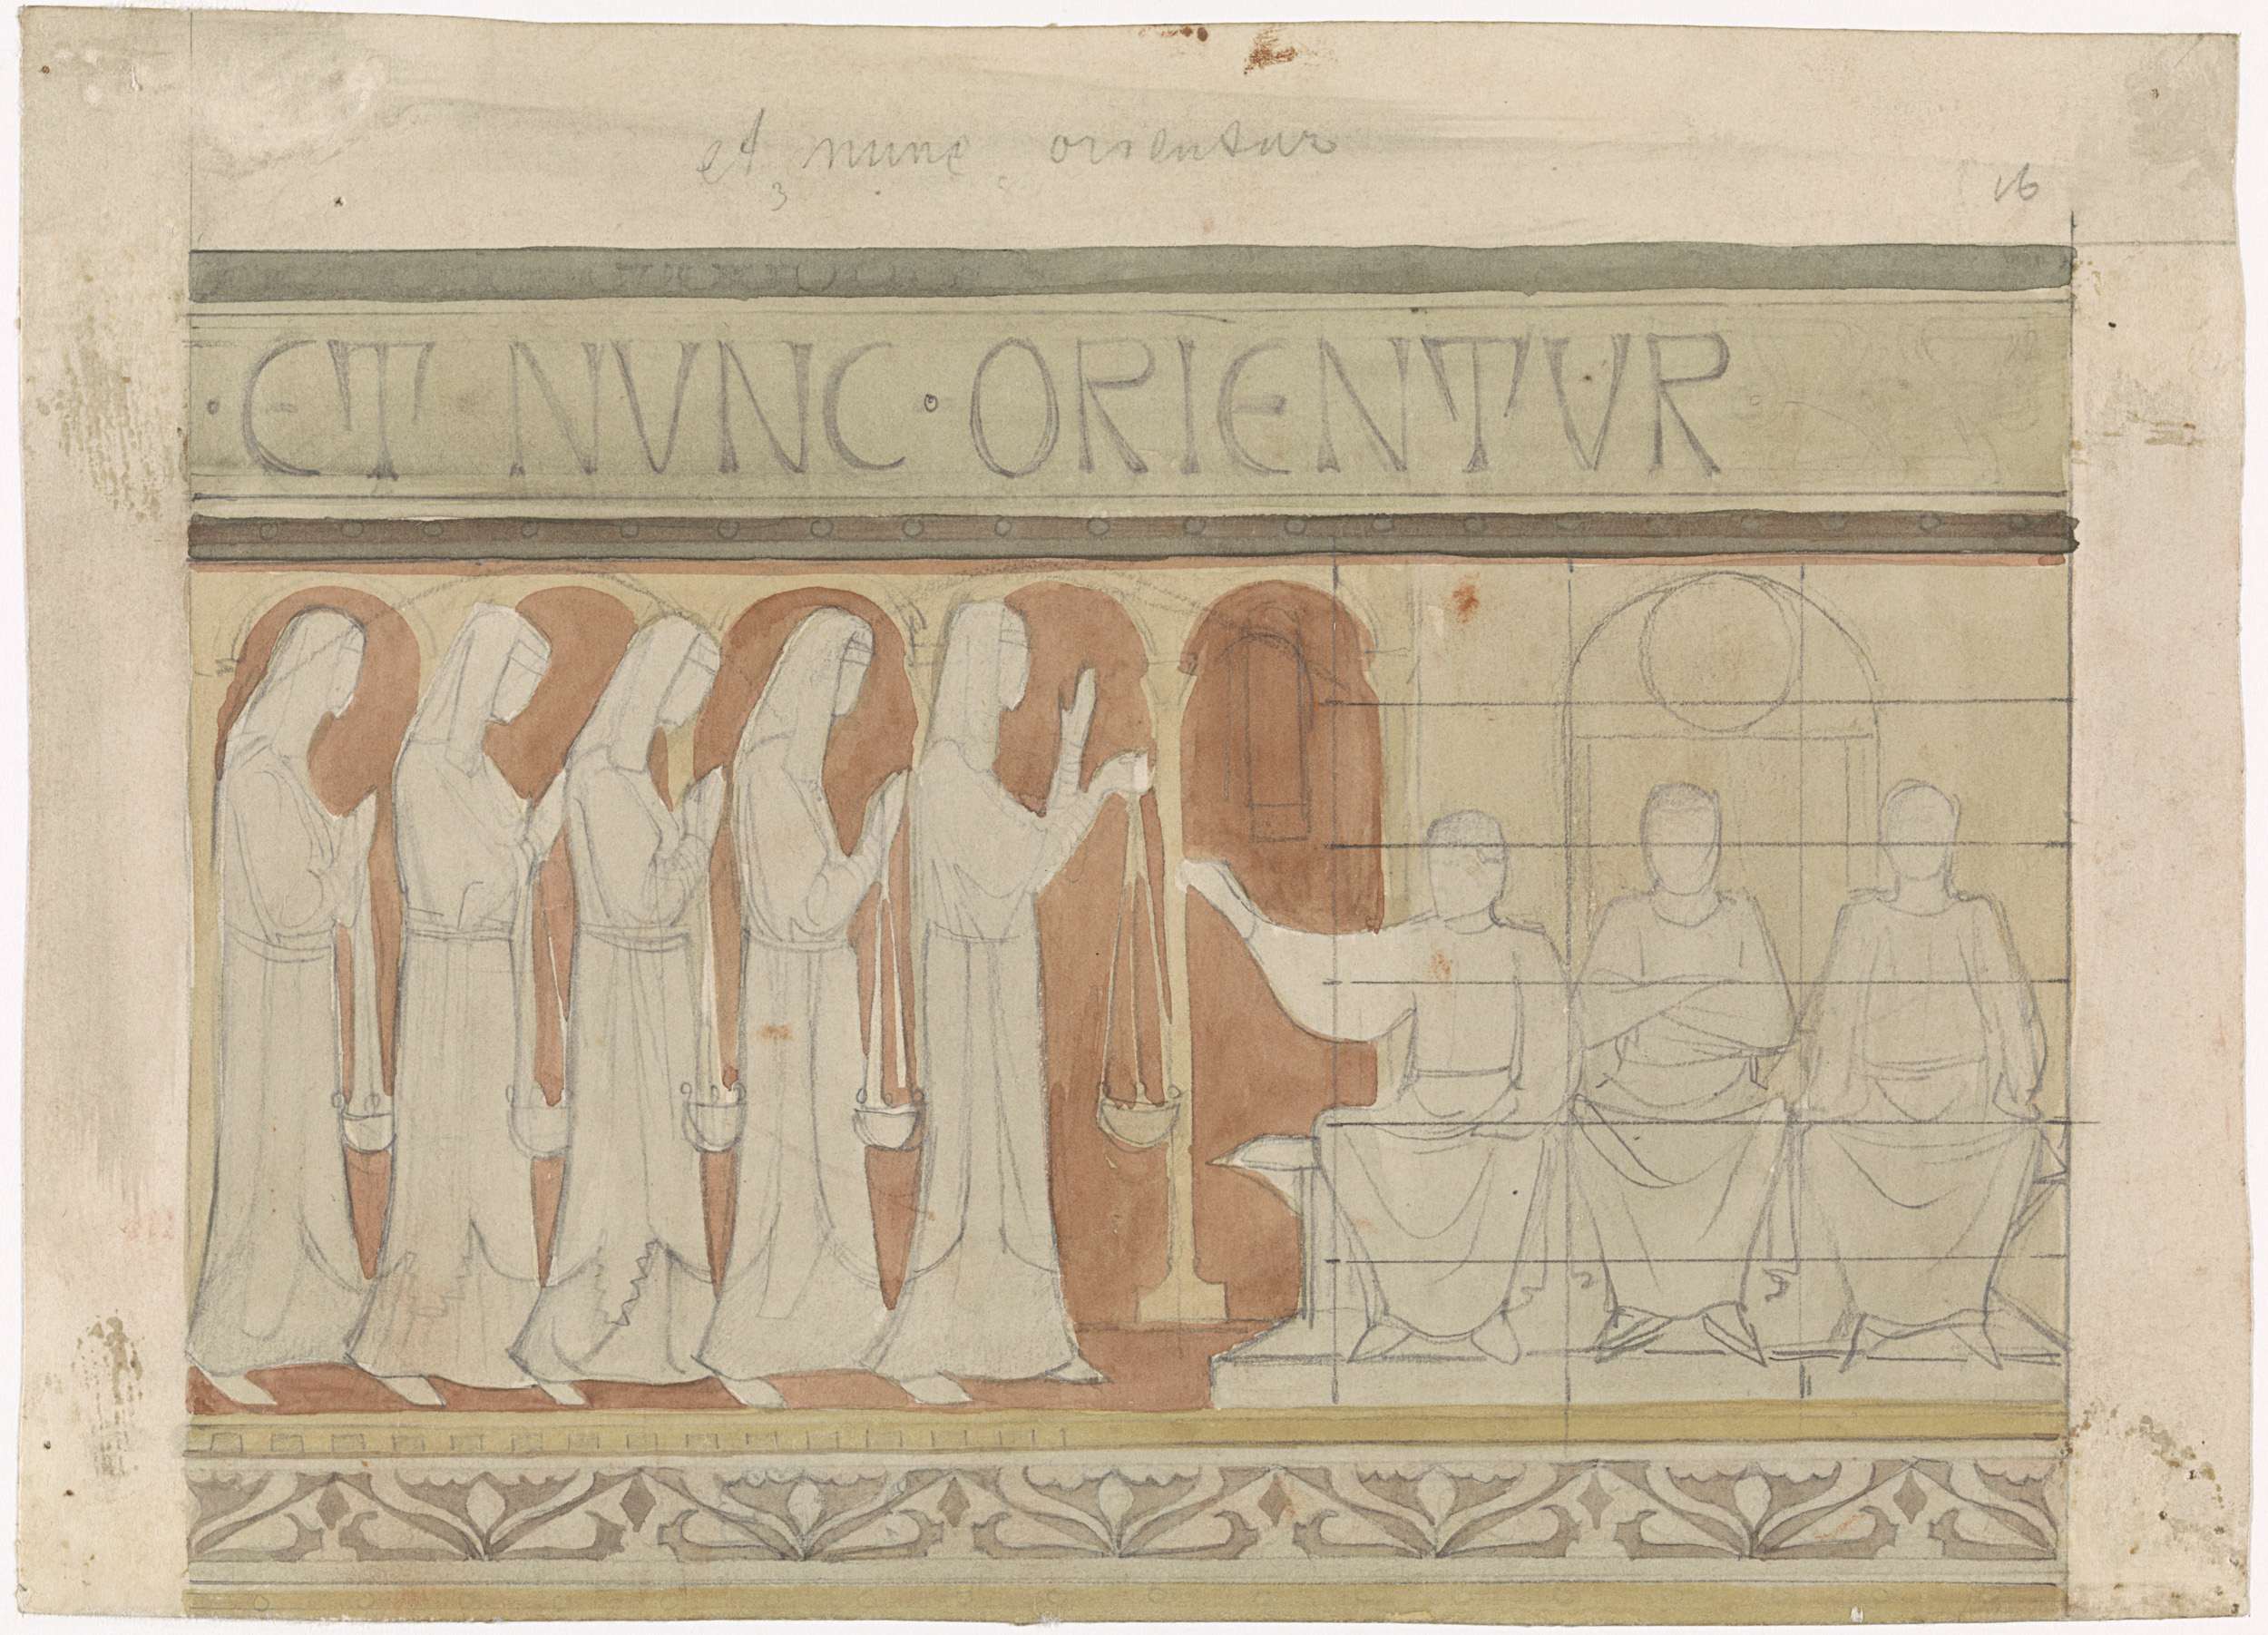 et nunc orientur
16
· ET NUNC · ORIENTUR